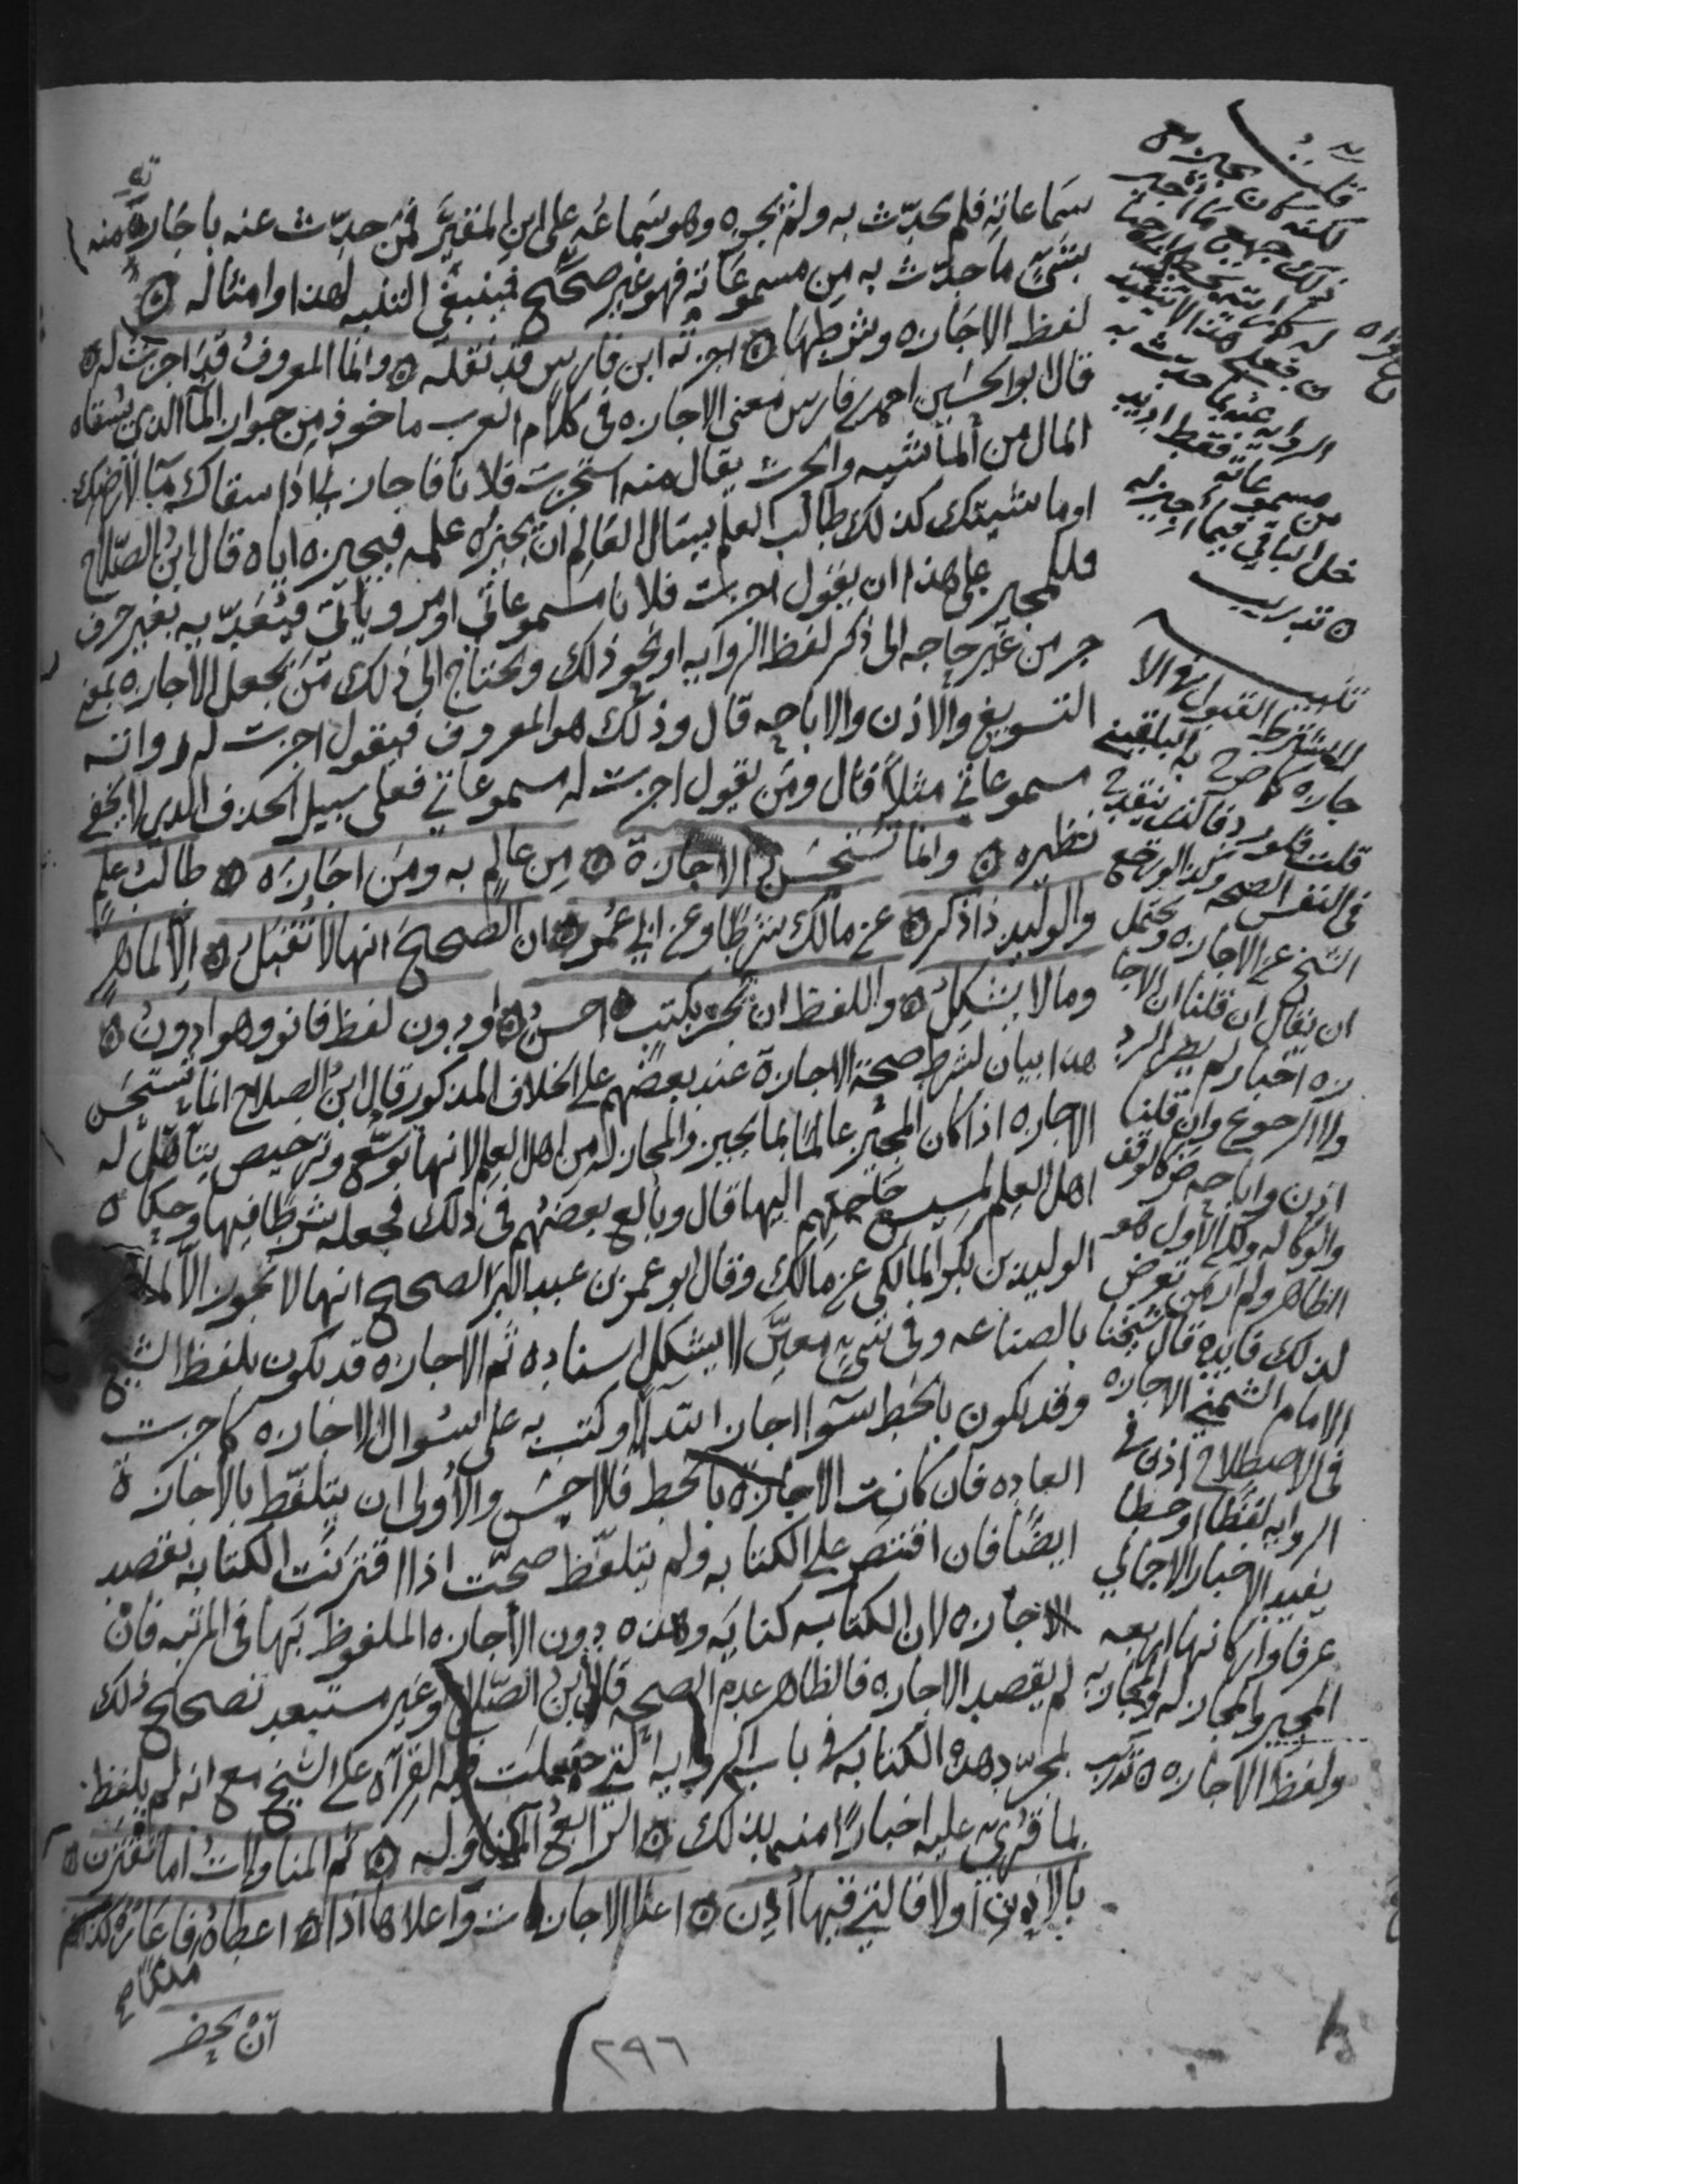 سماعاته فلم يحدث به ولم يجزه وهو سماعه على ابن المقير فمن حدث عنه باجازته منه
بشيء ما حدث به من مسموعاته فهو غير صحيح فينبغي التنبه لهذا وامثاله
لفظ الاجازه وشرطها اجزته ابن فارس قد نقله وانما المعروف قد اجزت له
قال ابو الحسين احمد بن فارس معنى الاجازه في كلام العرب ماخوذ من جواز الماء الذي يسقاه
المال من الماشيه والحرث يقال منه استجزت فلانا فاجازني اذا سقاك ماء لارضك
او ماشيتك كذلك طالب العلم يسال العالم ان يجيزه علمه فيجيزه اياه قال ابن الصلاح
فللمجيز على هذا ان يقول اجزت فلانا مسموعاتي او مروياتي فيعديه بغير حرف
جر من غير حاجه الى ذكر لفظ الروايه او نحو ذلك ويحتاج الى ذلك من يجعل الاجازه بمعنى
التسويغ والاذن والاباحه قال وذلك هو المعروف فيقول اجزت له روايه
مسموعاتي مثلا قال ومن يقول اجزت له مسموعاتي فعلى سبيل الحذف الذي لا يخفى
نظيره وانما تستحسن الاجازة من عالم به ومن اجازه طالب علم
والوليد ذا ذكر عن مالك شرطا وعن ابي عمر ان الصحيح انها لا تقبل الا لماهر
وما لا يشكل واللفظ ان تجز بكتب احسن او دون لفظ فانو وهو ادون
هذا بيان لشرط صحة الاجازة عند بعضهم على الخلاف المذكور قال ابن الصلاح انما تستحسن
الاجازه اذا كان المجيز عالما بما يجيز والمجاز له من اهل العلم لانها توسع وترخيص يتاهل له
اهل العلم لمسيس حاجتهم اليها قال وبالغ بعضهم في ذلك فجعله شرطا فيها وحكاه
الوليد بن بكر المالكي عن مالك وقال ابو عمر بن عبد البر الصحيح انها لا تجوز الا لماهر
بالصناعه وفي شيء معين لا يشكل اسناده ثم الاجازه قد تكون بلفظ الشيخ
وقد تكون بالخط سوا اجاز ابتدا او كتب به على سوال الاجازه كما جرت
العاده فان كانت الاجازة بالخط فالاحسن والاولى ان يتلفظ بالاجازة
ايضا فان اقتصر على الكتابه ولم يتلفظ صحت اذا اقترنت الكتابه بقصد
الاجازه لان الكتابه كنايه وهذه دون الاجازه الملفوظ بها في المرتبه فان
لم يقصد الاجازه فالظاهر عدم الصحه قال ابن الصلاح وغير مستبعد تصحيح ذلك
بمجرد هذه الكتابه في باب الروايه التي جعلت فيه القراه على الشيخ مع انه لم يلفظ
بما قرئ عليه اخبارا منه بذلك الرابع المناوله ثم المناولات اما تقترن
بالاذن اولا فالتي فيها اذن اعلا الاجازات واعلاها اذا اعطاه فاعارة كذا
ملكا
ان يحضر
قلت
لكنه كان يجيز مع
ذلك جميع ما اجيز
له كما
فعلى هذا لا تتقيد
الروايه عنه بما حدث به
من مسموعاته فقط اذ يد
خل الباقي فيما اجيز له
تدريب
تنبيه
لا يشترط القبول في الا
جازه كما صرح به البلقيني
قلت فلو رد فالذي ينقدح
في النفس الصحه وكذا لو رجع
الشيخ عن الاجازه ويحتمل
ان يقال ان قلنا ان الاجا
زه اخبار لم يضر الرد
ولا الرجوع وان قلنا
اذن واباحه ضر كالوقف
والوكاله ولكن الاول هو
الظاهر ولم ار من تعرض
لذلك فايده قال شيخنا
الامام الشمني الاجازه
في الاصطلاح اذن في
الروايه لفظا او خطا
يفيد الاخبار الاجمالي
عرفا واركانها اربعه
المجيز والمجاز له والمجاز به
ولفظ الاجازه تدريب
٢٩٦